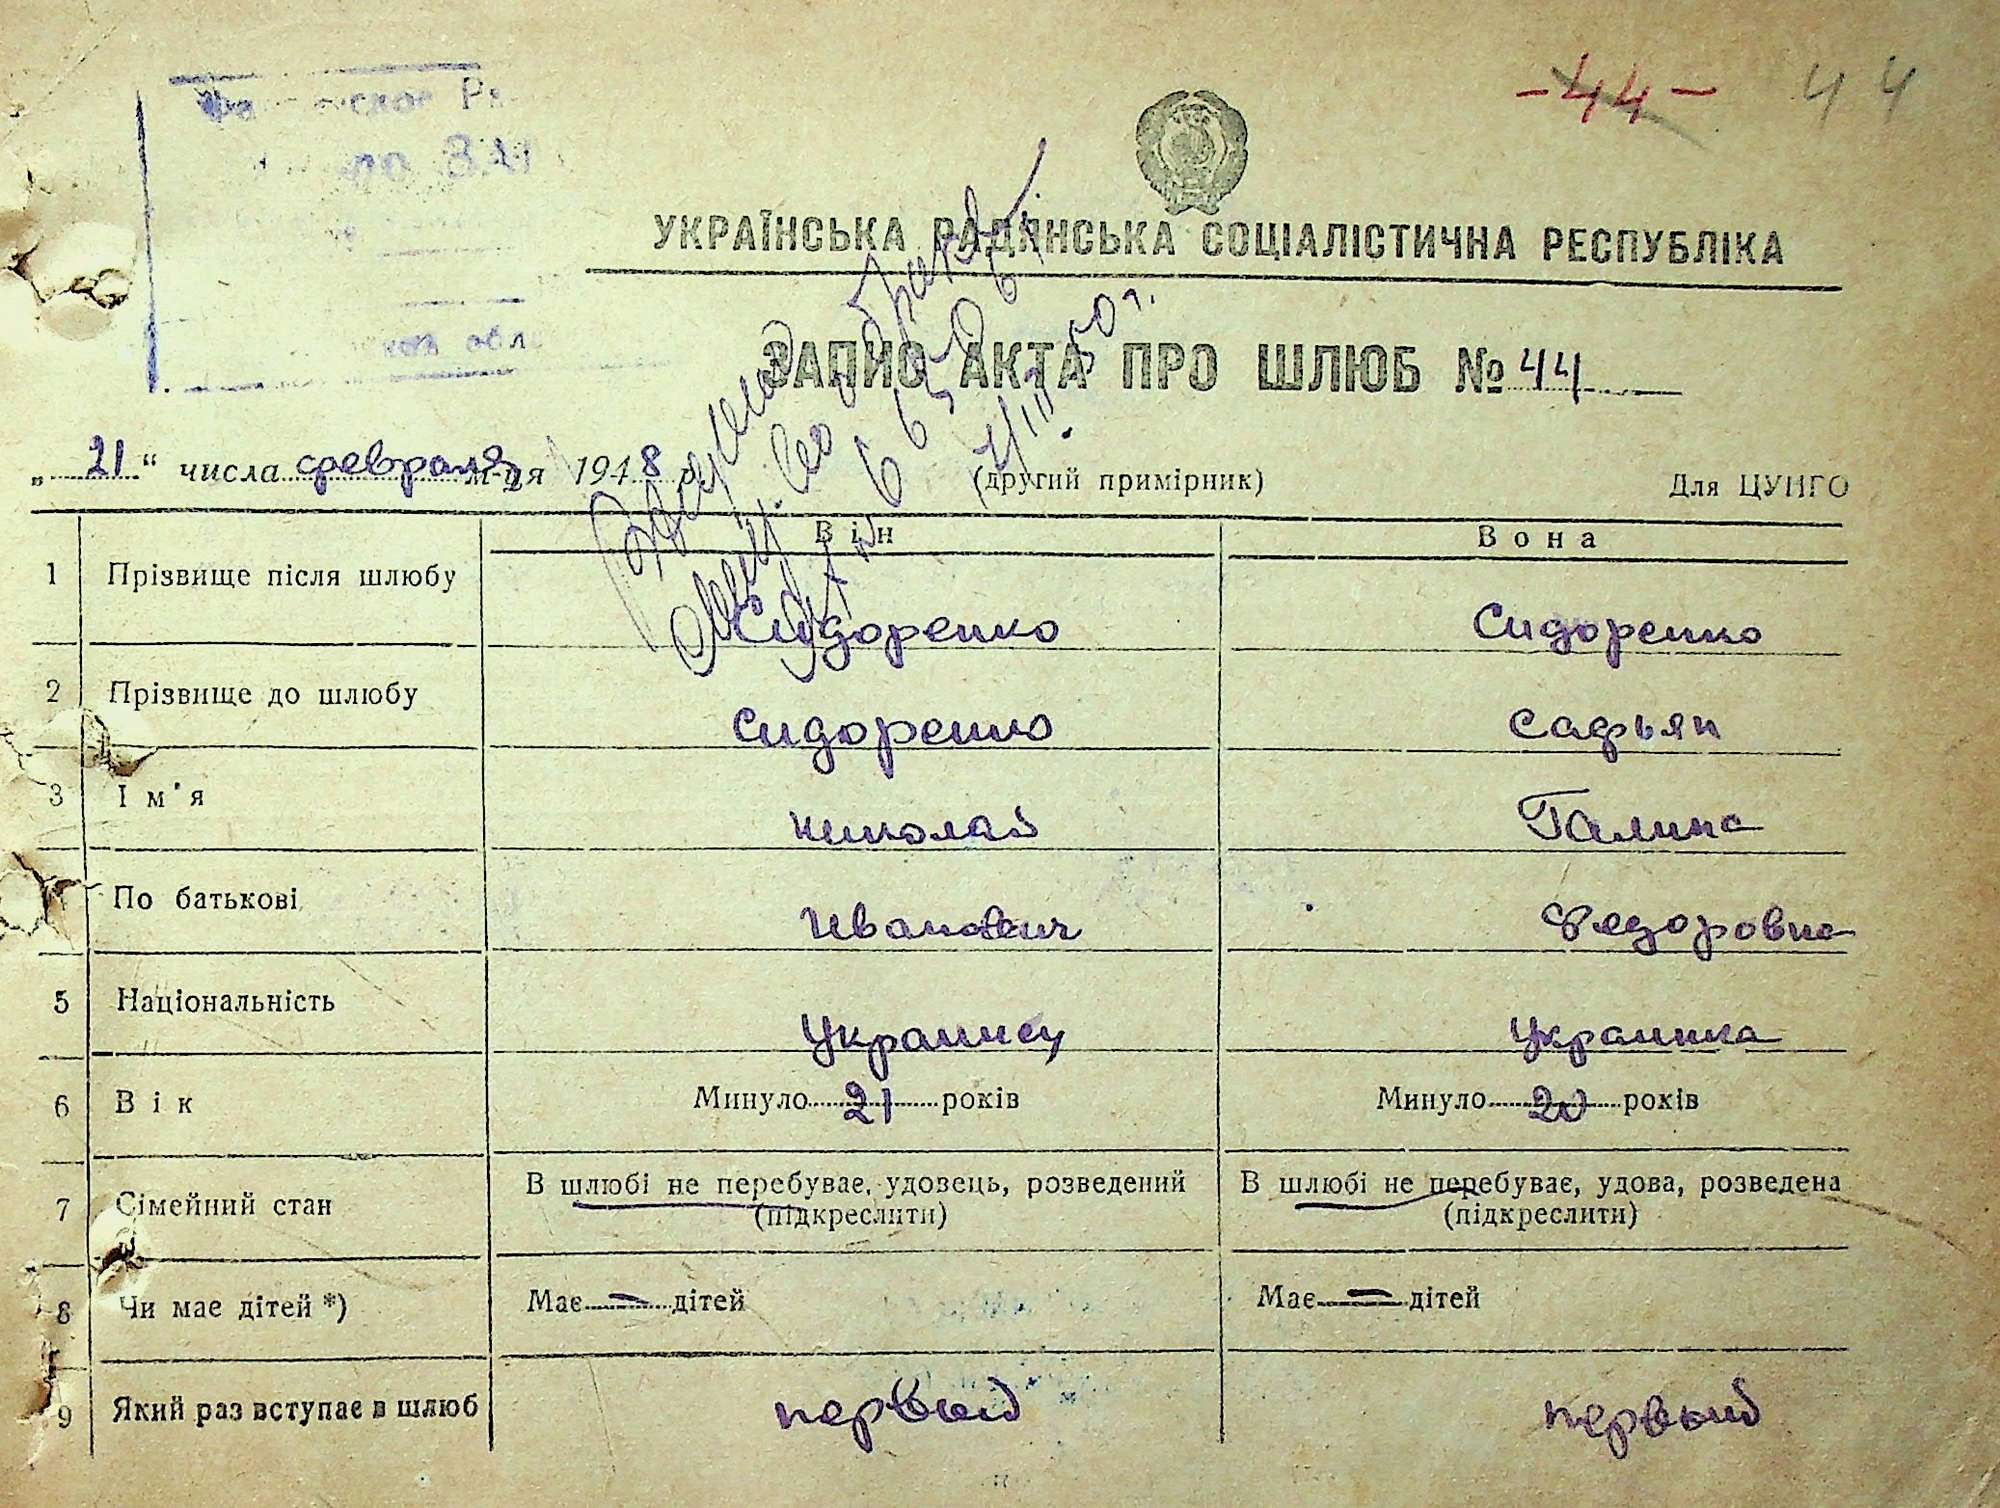 -44- 44
УКРАЇНСЬКА РАДЯНСЬКА СОЦІАЛІСТИЧНА РЕСПУБЛІКА
ЗАПИС АКТА ПРО ШЛЮБ № 44
„ 21 “ числа февраля м-ця 1948 р.
(другий примірник) Для ЦУНГО
Він Вона
1 Прізвище після шлюбу Сидоренко Сидоренко
2 Прізвище до шлюбу Сидоренко Сафьян
3 Ім'я Николай Галина
По батькові Иванович Федоровна
5 Національність Украинец Украинка
6 Вік Минуло 21 років Минуло 20 років
7 Сімейний стан В шлюбі не перебуває, удовець, розведений (підкреслити) В шлюбі не перебуває, удова, розведена (підкреслити)
8 Чи має дітей *) Має — дітей Має — дітей
9 Який раз вступає в шлюб первый первый